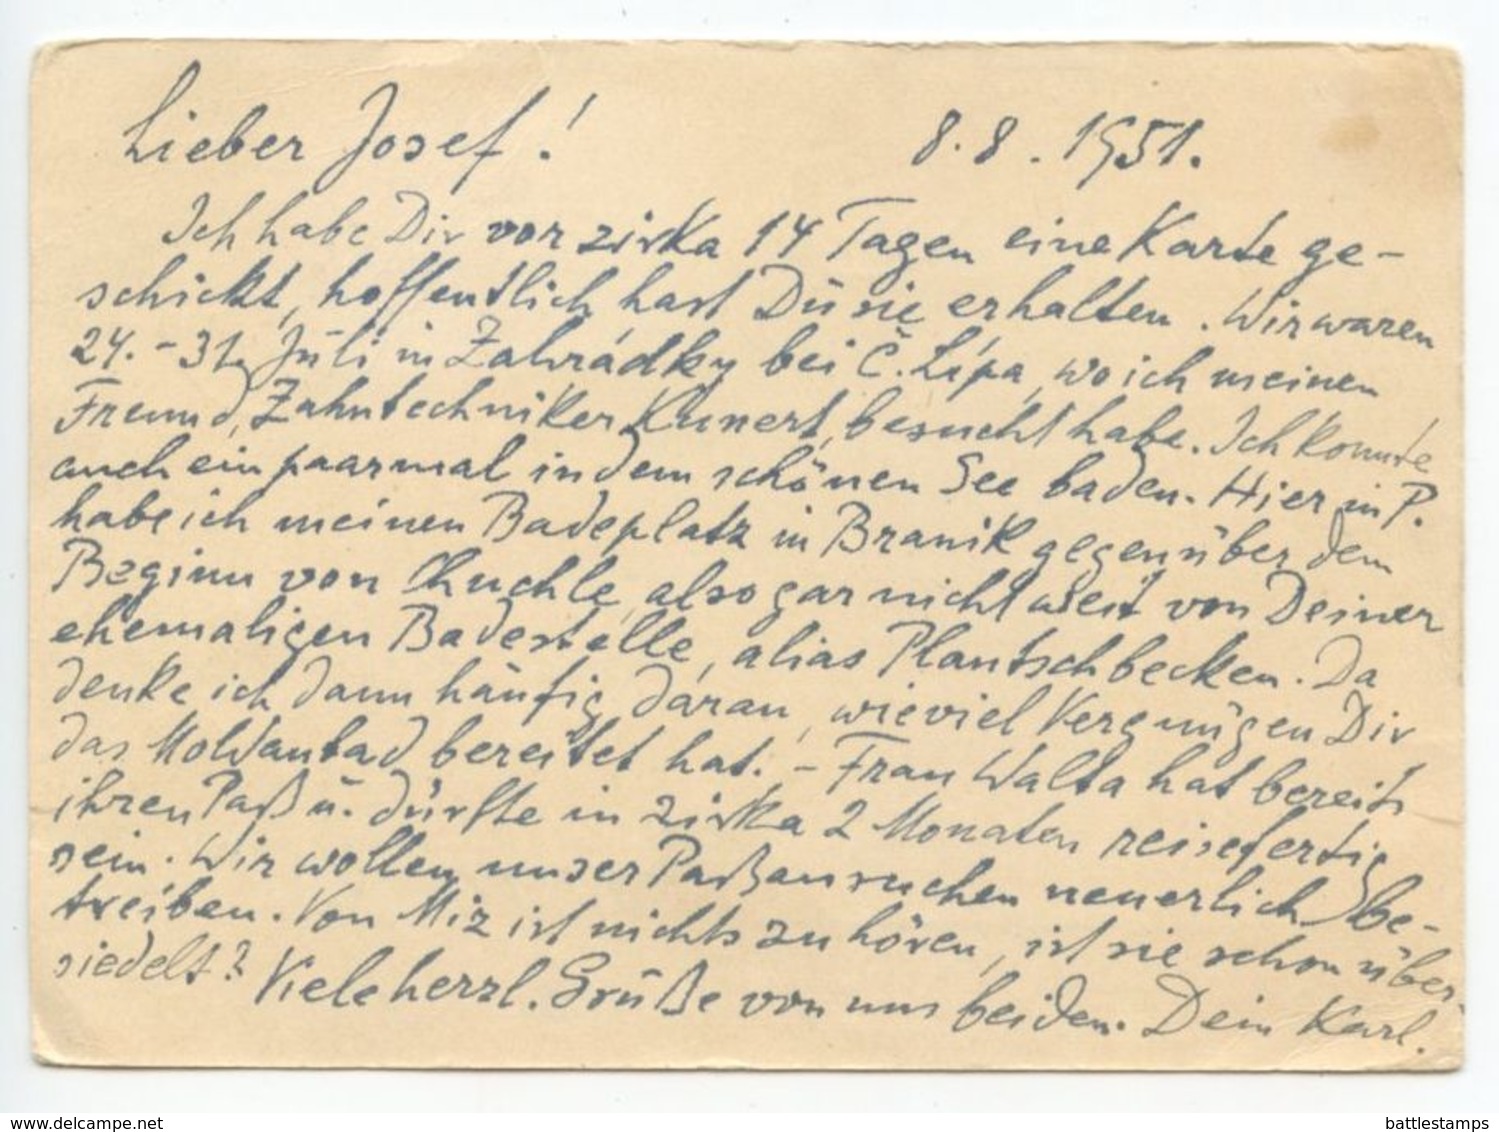 Lieber Josef! 8.8.1951.
Ich habe Dir vor zirka 14 Tagen eine Karte ge-
schickt, hoffentlich hast Du sie erhalten. Wir waren
24.-31. Juli in Zahrádky bei Č. Lípa, wo ich meinen
Freund, Zahntechniker Kunert, besucht habe. Ich konnte
auch ein paarmal in dem schönen See baden. Hier in P.
habe ich meinen Badeplatz in Branik gegenüber dem
Beginn von Chuchle, also gar nicht weit von Deiner
ehemaligen Badestelle, alias Plantschbecken. Da
denke ich dann häufig daran, wieviel Vergnügen Dir
das Moldaubad bereitet hat. - Frau Walta hat bereits
ihren Paß u. dürfte in zirka 2 Monaten reisefertig
sein. Wir wollen unser Paßansuchen neuerlich be-
treiben. Von Miz ist nichts zu hören, ist sie schon über-
siedelt? Viele herzl. Grüße von uns beiden. Dein Karl.
www.delcampe.net battlestamps